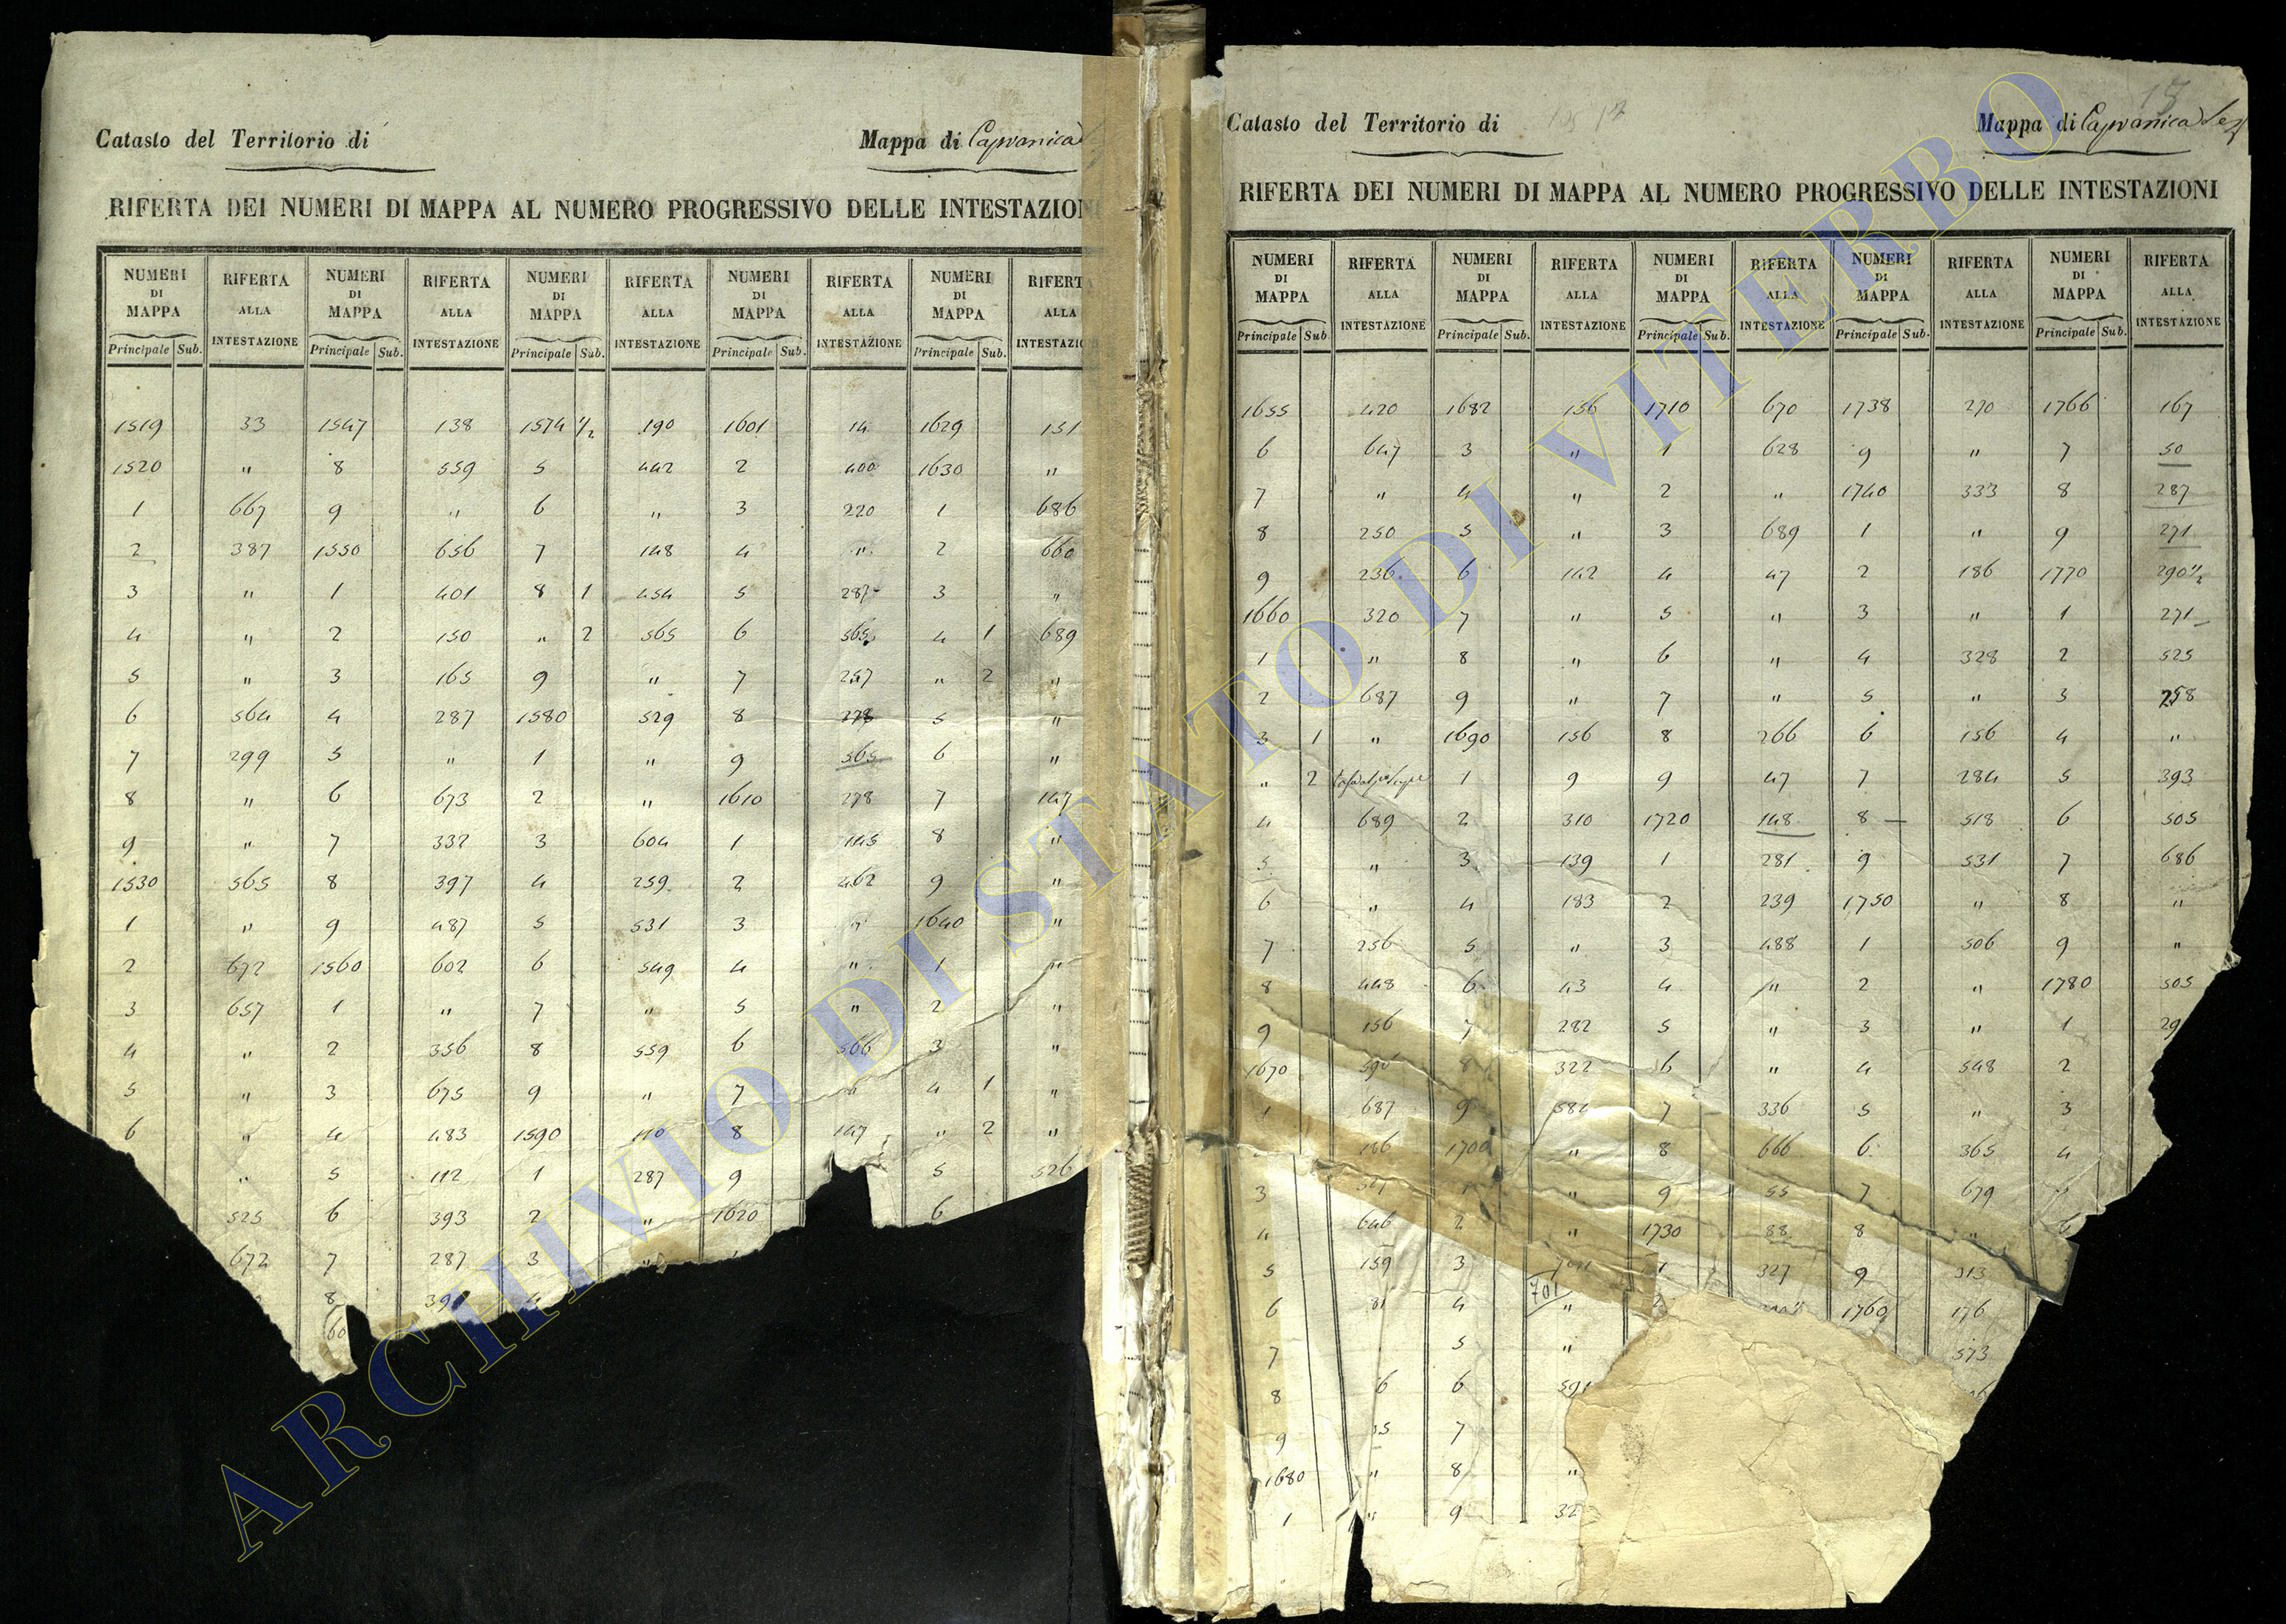 Catasto del Territorio di
Mappa di Capranica
RIFERTA DEI NUMERI DI MAPPA AL NUMERO PROGRESSIVO DELLE INTESTAZION
NUMERI DI MAPPA RIFERTA ALLA INTESTAZIONE NUMERI DI MAPPA RIFERTA ALLA INTESTAZIONE NUMERI DI MAPPA RIFERTA ALLA INTESTAZIONE NUMERI DI MAPPA RIFERTA ALLA INTESTAZIONE NUMERI DI MAPPA RIFERTA ALLA INTESTAZIO
Principale Sub. Principale Sub. Principale Sub. Principale Sub. Principale Sub.
1519 33 1547 138 1574 1/2 190 1601 14 1629 151
1520 " 8 559 5 442 2 400 1630 "
1 667 9 " 6 " 3 220 1 686
2 387 1550 656 7 148 4 " 2 660
3 " 1 401 8 1 454 5 287 3 "
4 " 2 150 " 2 565 6 565 4 1 689
5 " 3 165 9 " 7 257 " 2 "
6 564 4 287 1580 529 8 278 5 "
7 299 5 " 1 " 9 565 6 "
8 " 6 673 2 " 1610 278 7 147
9 " 7 332 3 604 1 145 8 "
1530 565 8 397 4 259 2 462 9 "
1 " 9 487 5 531 3 " 1640 "
2 672 1560 602 6 549 4 " 1 "
3 657 1 " 7 " 5 " 2 "
4 " 2 356 8 559 6 566 3 "
5 " 3 675 9 " 7 " 4 1 "
6 " 4 483 1590 110 8 147 " 2 "
" 5 112 1 287 9 5 526
525 6 393 2 " 1620 6
672 7 287 3 "
8 39 4
60
Catasto del Territorio di
17
Mappa di Capranica
RIFERTA DEI NUMERI DI MAPPA AL NUMERO PROGRESSIVO DELLE INTESTAZIONI
NUMERI DI MAPPA RIFERTA ALLA INTESTAZIONE NUMERI DI MAPPA RIFERTA ALLA INTESTAZIONE NUMERI DI MAPPA RIFERTA ALLA INTESTAZIONE NUMERI DI MAPPA RIFERTA ALLA INTESTAZIONE NUMERI DI MAPPA RIFERTA ALLA INTESTAZIONE
Principale Sub. Principale Sub. Principale Sub. Principale Sub. Principale Sub.
1655 420 1682 156 1710 670 1738 270 1766 167
6 647 3 " 1 628 9 " 7 50
7 " 4 " 2 " 1740 333 8 287
8 250 5 " 3 689 1 " 9 271
9 236 6 142 4 47 2 186 1770 290 1/2
1660 320 7 " 5 " 3 " 1 271
1 " 8 " 6 " 4 328 2 525
2 687 9 " 7 " 5 " 3 258
3 1 " 1690 156 8 266 6 156 4 "
" 2 1 9 9 47 7 284 5 393
4 689 2 310 1720 148 8 518 6 505
5 " 3 139 1 281 9 531 7 686
6 " 4 183 2 239 1750 " 8 "
7 256 5 " 3 488 1 506 9 "
8 448 6 43 4 " 2 " 1780 505
9 156 7 282 5 " 3 " 1 29
1670 596 8 322 6 " 4 548 2
1 687 9 582 7 336 5 " 3
186 1700 " 8 666 6 365 4
3 " 9 55 7 679
4 646 2 " 1730 88 8 "
5 159 3 1 327 9 313
6 81 4 701 " 2 1760 176
7 5 " 573
8 6 6 591
9 35 7
1680 " 8 "
1 " 9 32
ARCHIVIO DI STATO DI VITERBO